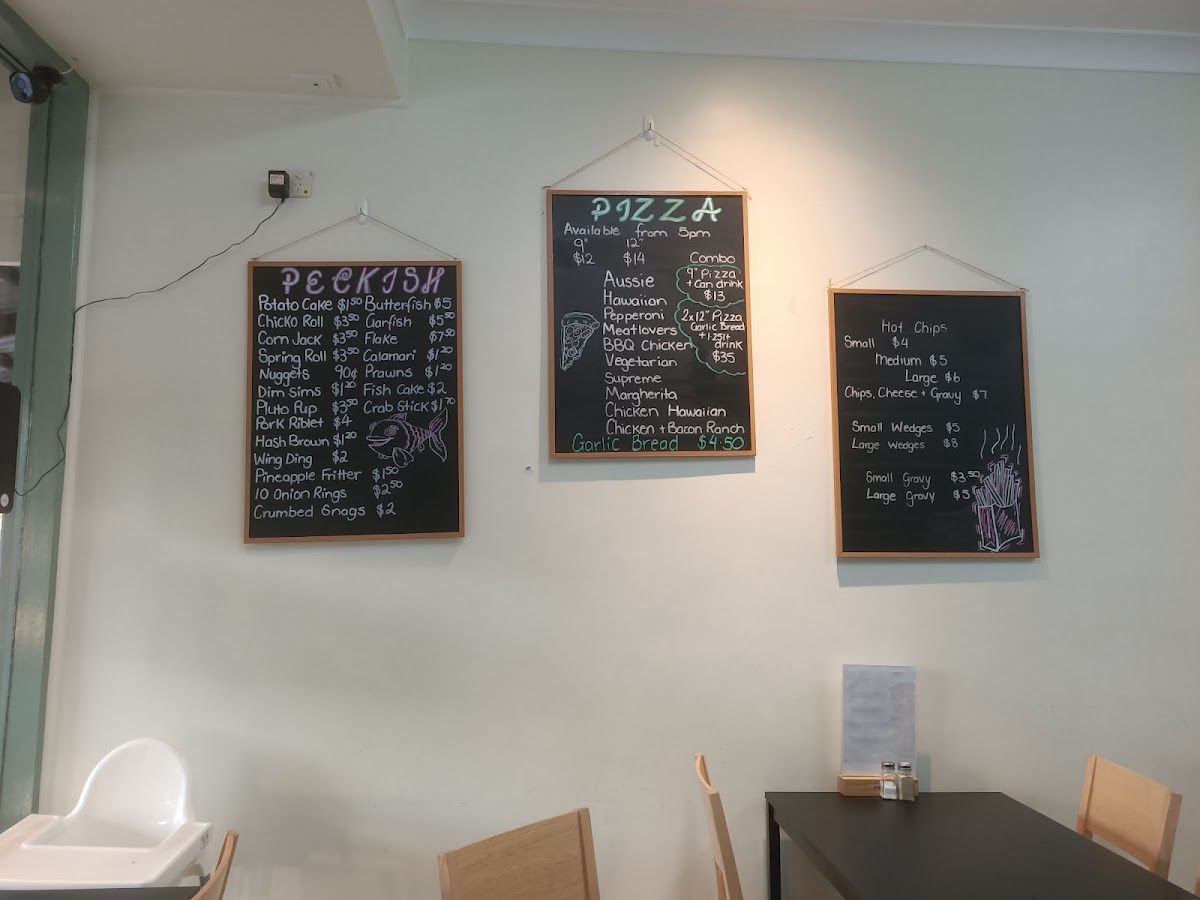 PECKISH
Potato Cake $1.50 Butterfish $5
Chicko Roll $3.50 Garfish $5.50
Corn Jack $3.50 Flake $7.50
Spring Roll $3.50 Calamari $1.20
Nuggets 90¢ Prawns $1.20
Dim Sims $1.20 Fish Cake $2
Pluto Pup $3.50 Crab Stick $1.70
Pork Riblet $4
Hash Brown $1.20
Wing Ding $2
Pineapple Fritter $1.50
10 Onion Rings $2.50
Crumbed Snags $2
PIZZA
Available from 5pm
9" 12"
$12 $14
Aussie
Hawaiian
Pepperoni
Meatlovers
BBQ Chicken
Vegetarian
Supreme
Margherita
Chicken Hawaiian
Chicken + Bacon Ranch
Garlic Bread $4.50
Combo
9" Pizza
+ Can drink
$13
2x12" Pizza
Garlic Bread
+ 1.25lt
drink
$35
Hot Chips
Small $4
Medium $5
Large $6
Chips, Cheese + Gravy $7
Small Wedges $5
Large Wedges $8
Small Gravy $3.50
Large Gravy $5